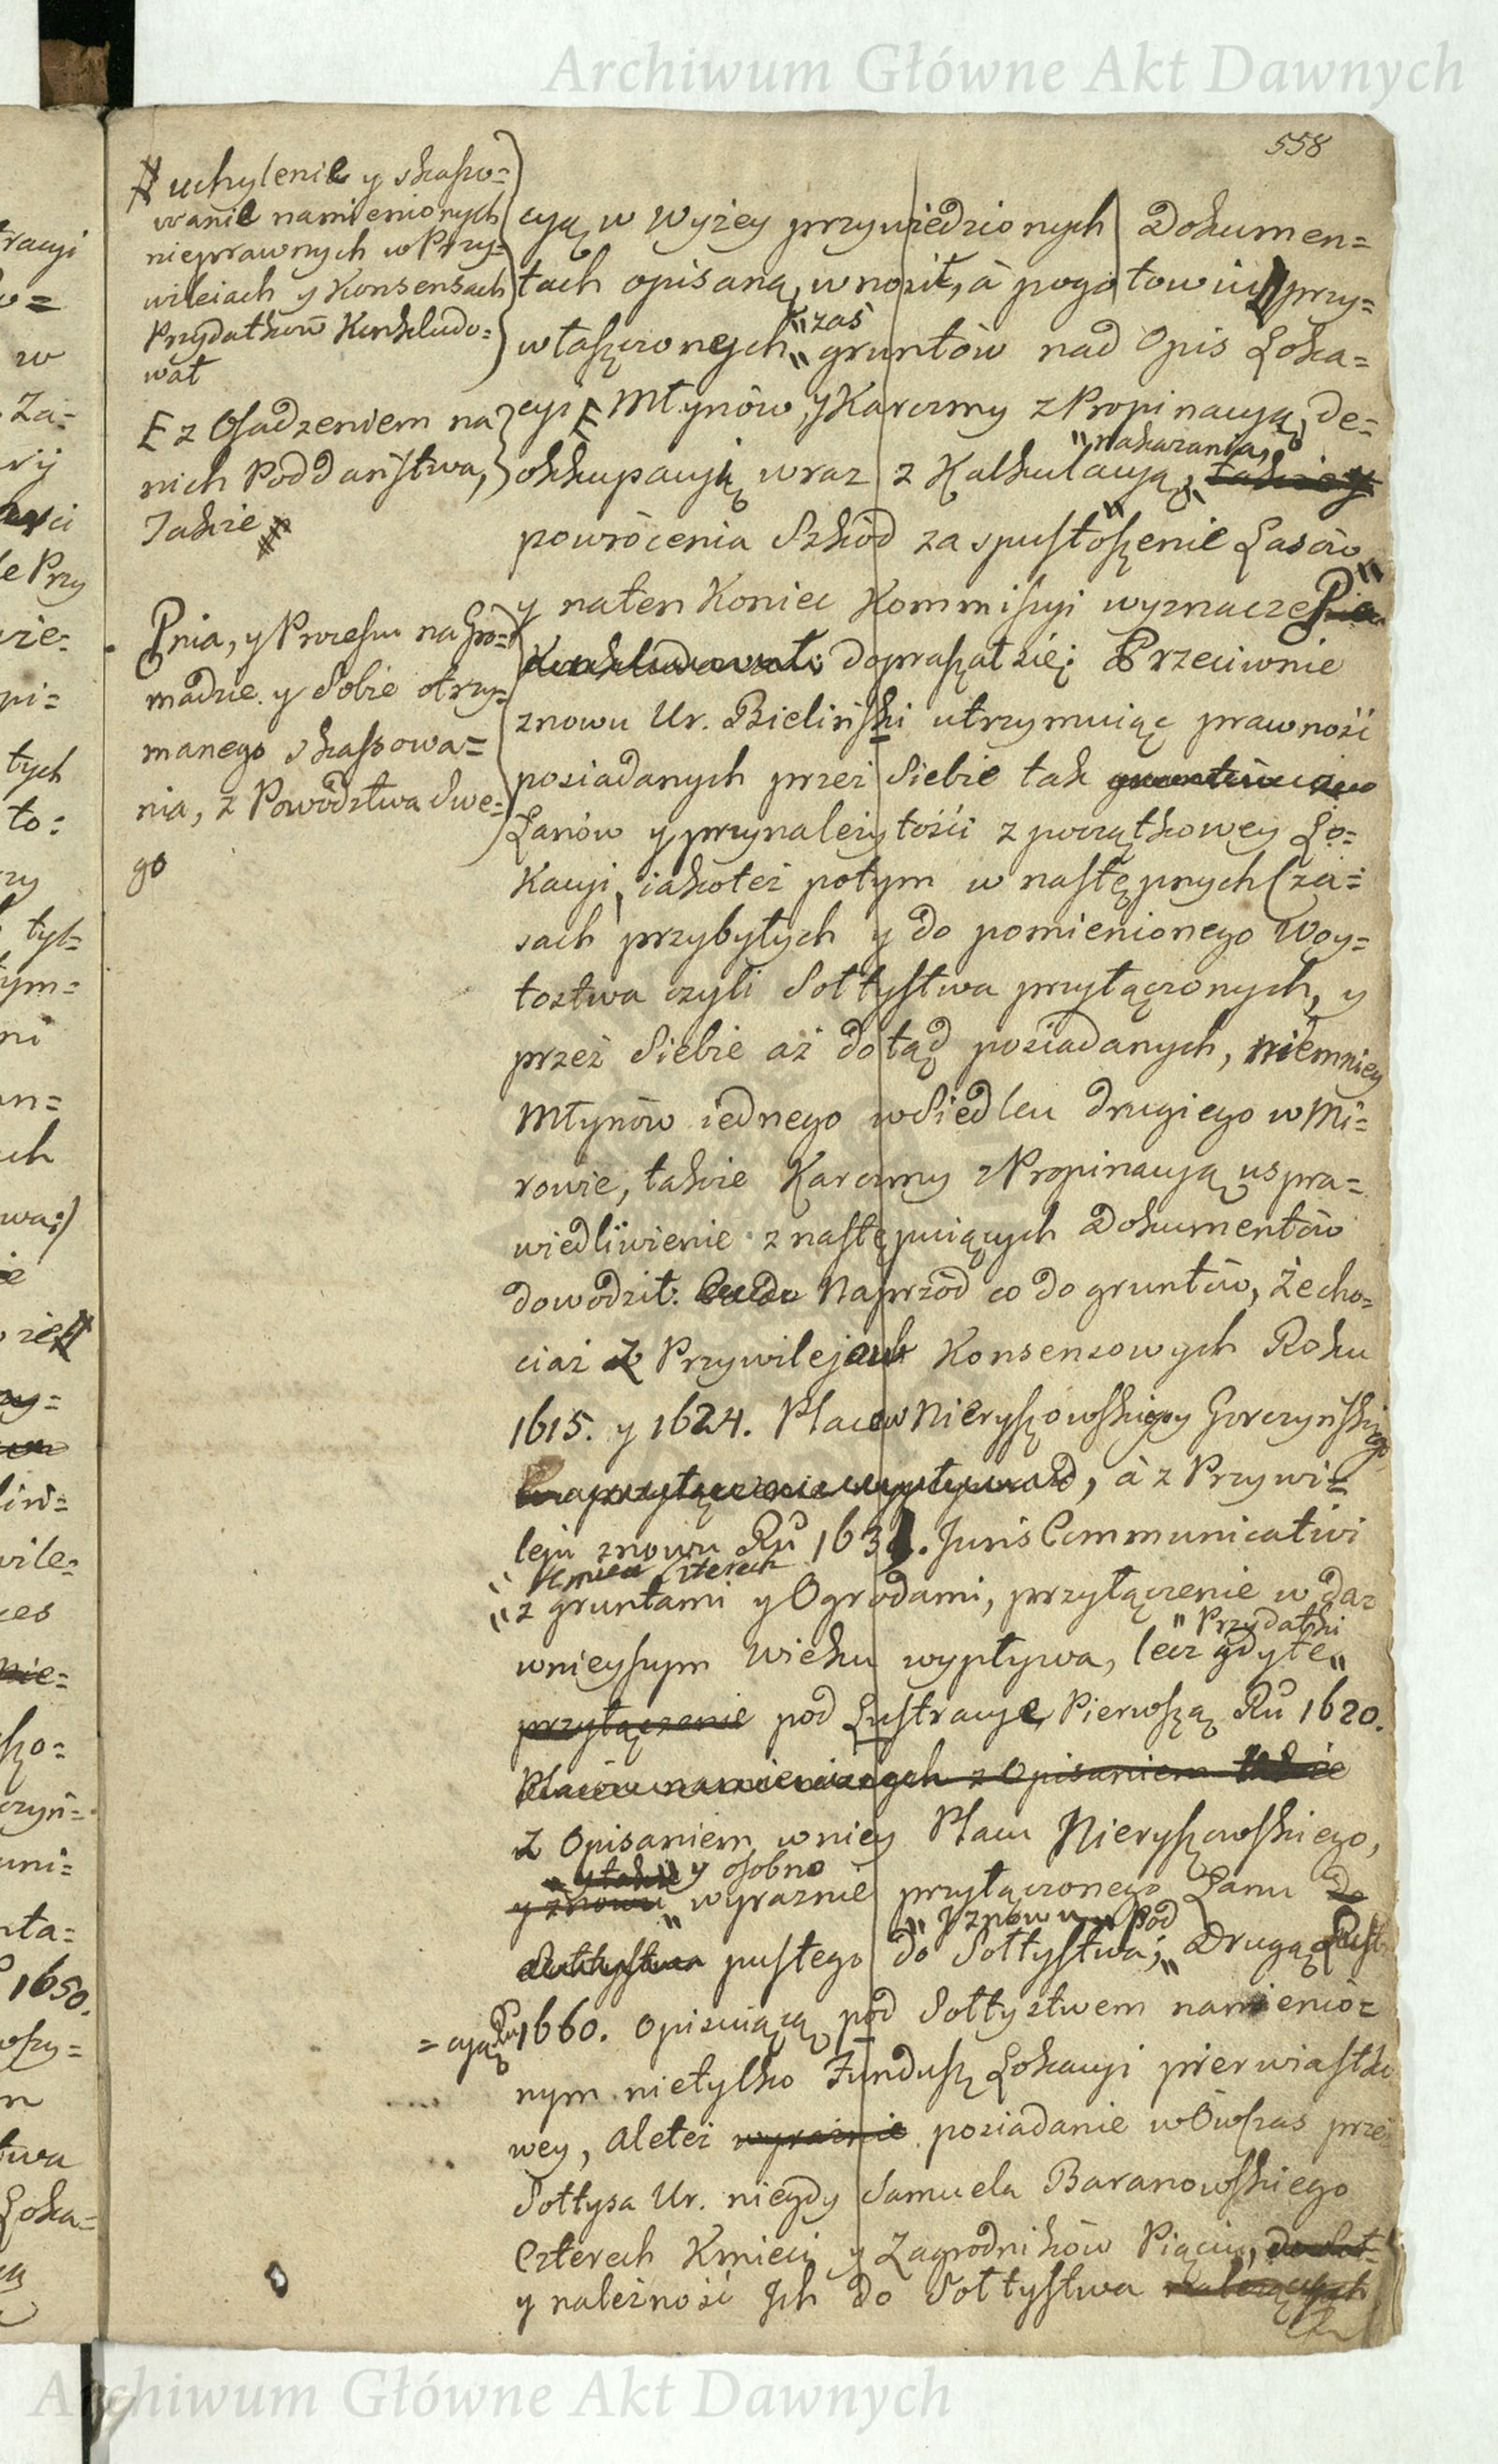 Archiwum Główne Akt Dawnych
558
# uchylenie y skasso=
wanie namienionych
nieprawnych w Przy=
wileiach y Konsensach
Przydatków Konkludo=
wał
E z Osadzeniem na
nich Poddaństwa,
Jakie #
Pnia, y Procesu na Gro=
madzie y Sobie otrzy=
manego skassowa=
nia, z Powództwa swe=
go
cyą w wyżey przywiedzionych Dokumen=
tach opisaną, wnosił, à pogotowiu przy=
zaś
właszczonych gruntów nad Opis Loka=
cyi E Młynów, y Karczmy z Propinacyą, de=
nakazania,
okkupacyią wraz z Kalkulacyą, także y
powrócenia Szkód za spustoszenie Lasów
y naten Koniec Kommissyi wyznacze
Konkludował: dopraszał się; Przeciwnie
znowu Ur. Bieliński utrzymuiąc prawność
posiadanych przez Siebie tak gruntów iako
Łanów y przynależytości z początkowey Lo=
kacyi, iakoteż potym w następnych Cza=
sach przybyłych y do pomienionego Woy=
tostwa czyli Sołtystwa przyłączonych, y
przez Siebie aż dotąd posiadanych, niemniey
Młynów iednego w Siedlcu drugiego w Mi=
rowie, także Karczmy z Propinacyą uspra=
wiedliwienie z następuiących Dokumentów
dowodził. Naprzód co do gruntów, że cho=
ciaż z Przywilejach Konsensowych Roku
1615. y 1624. Placow Nieryszowskiego y Gorczyńskiego
przyłączenie wypływało, à z Przywi=
leju znowu Ru 163 . Juris Communicativi
Kmieci czterech
z gruntami y Ogrodami, przyłączenie w da=
Przydatki
wnieyszym wieku wypływa, lecz gdy te
przyłączenie pod Lustracye Pierwszą Ru 1620.
Placow namienionych z Opisaniem także
z Opisaniem w niey Placu Nieryszowskiego,
y także y osobno
y znowu wyraznie przyłączonego Łanu do
Y znowu pod
Sołtystwa pustego do Sołtystwa; Drugą Lustra
= cyą Ru 1660. opisuiącą pod Sołtystwem namienio=
nym nietylko Fundusz Lokacyi pierwiastko
wey, ale też wyraźnie posiadanie wówczas prze
Sołtysa Ur. niegdy Samuela Baranowskiego
Czterech Kmieci y Zagrodników Pięciu, do Soł=
y należność Ich do Sołtystwa należących
Archiwum Główne Akt Dawnych